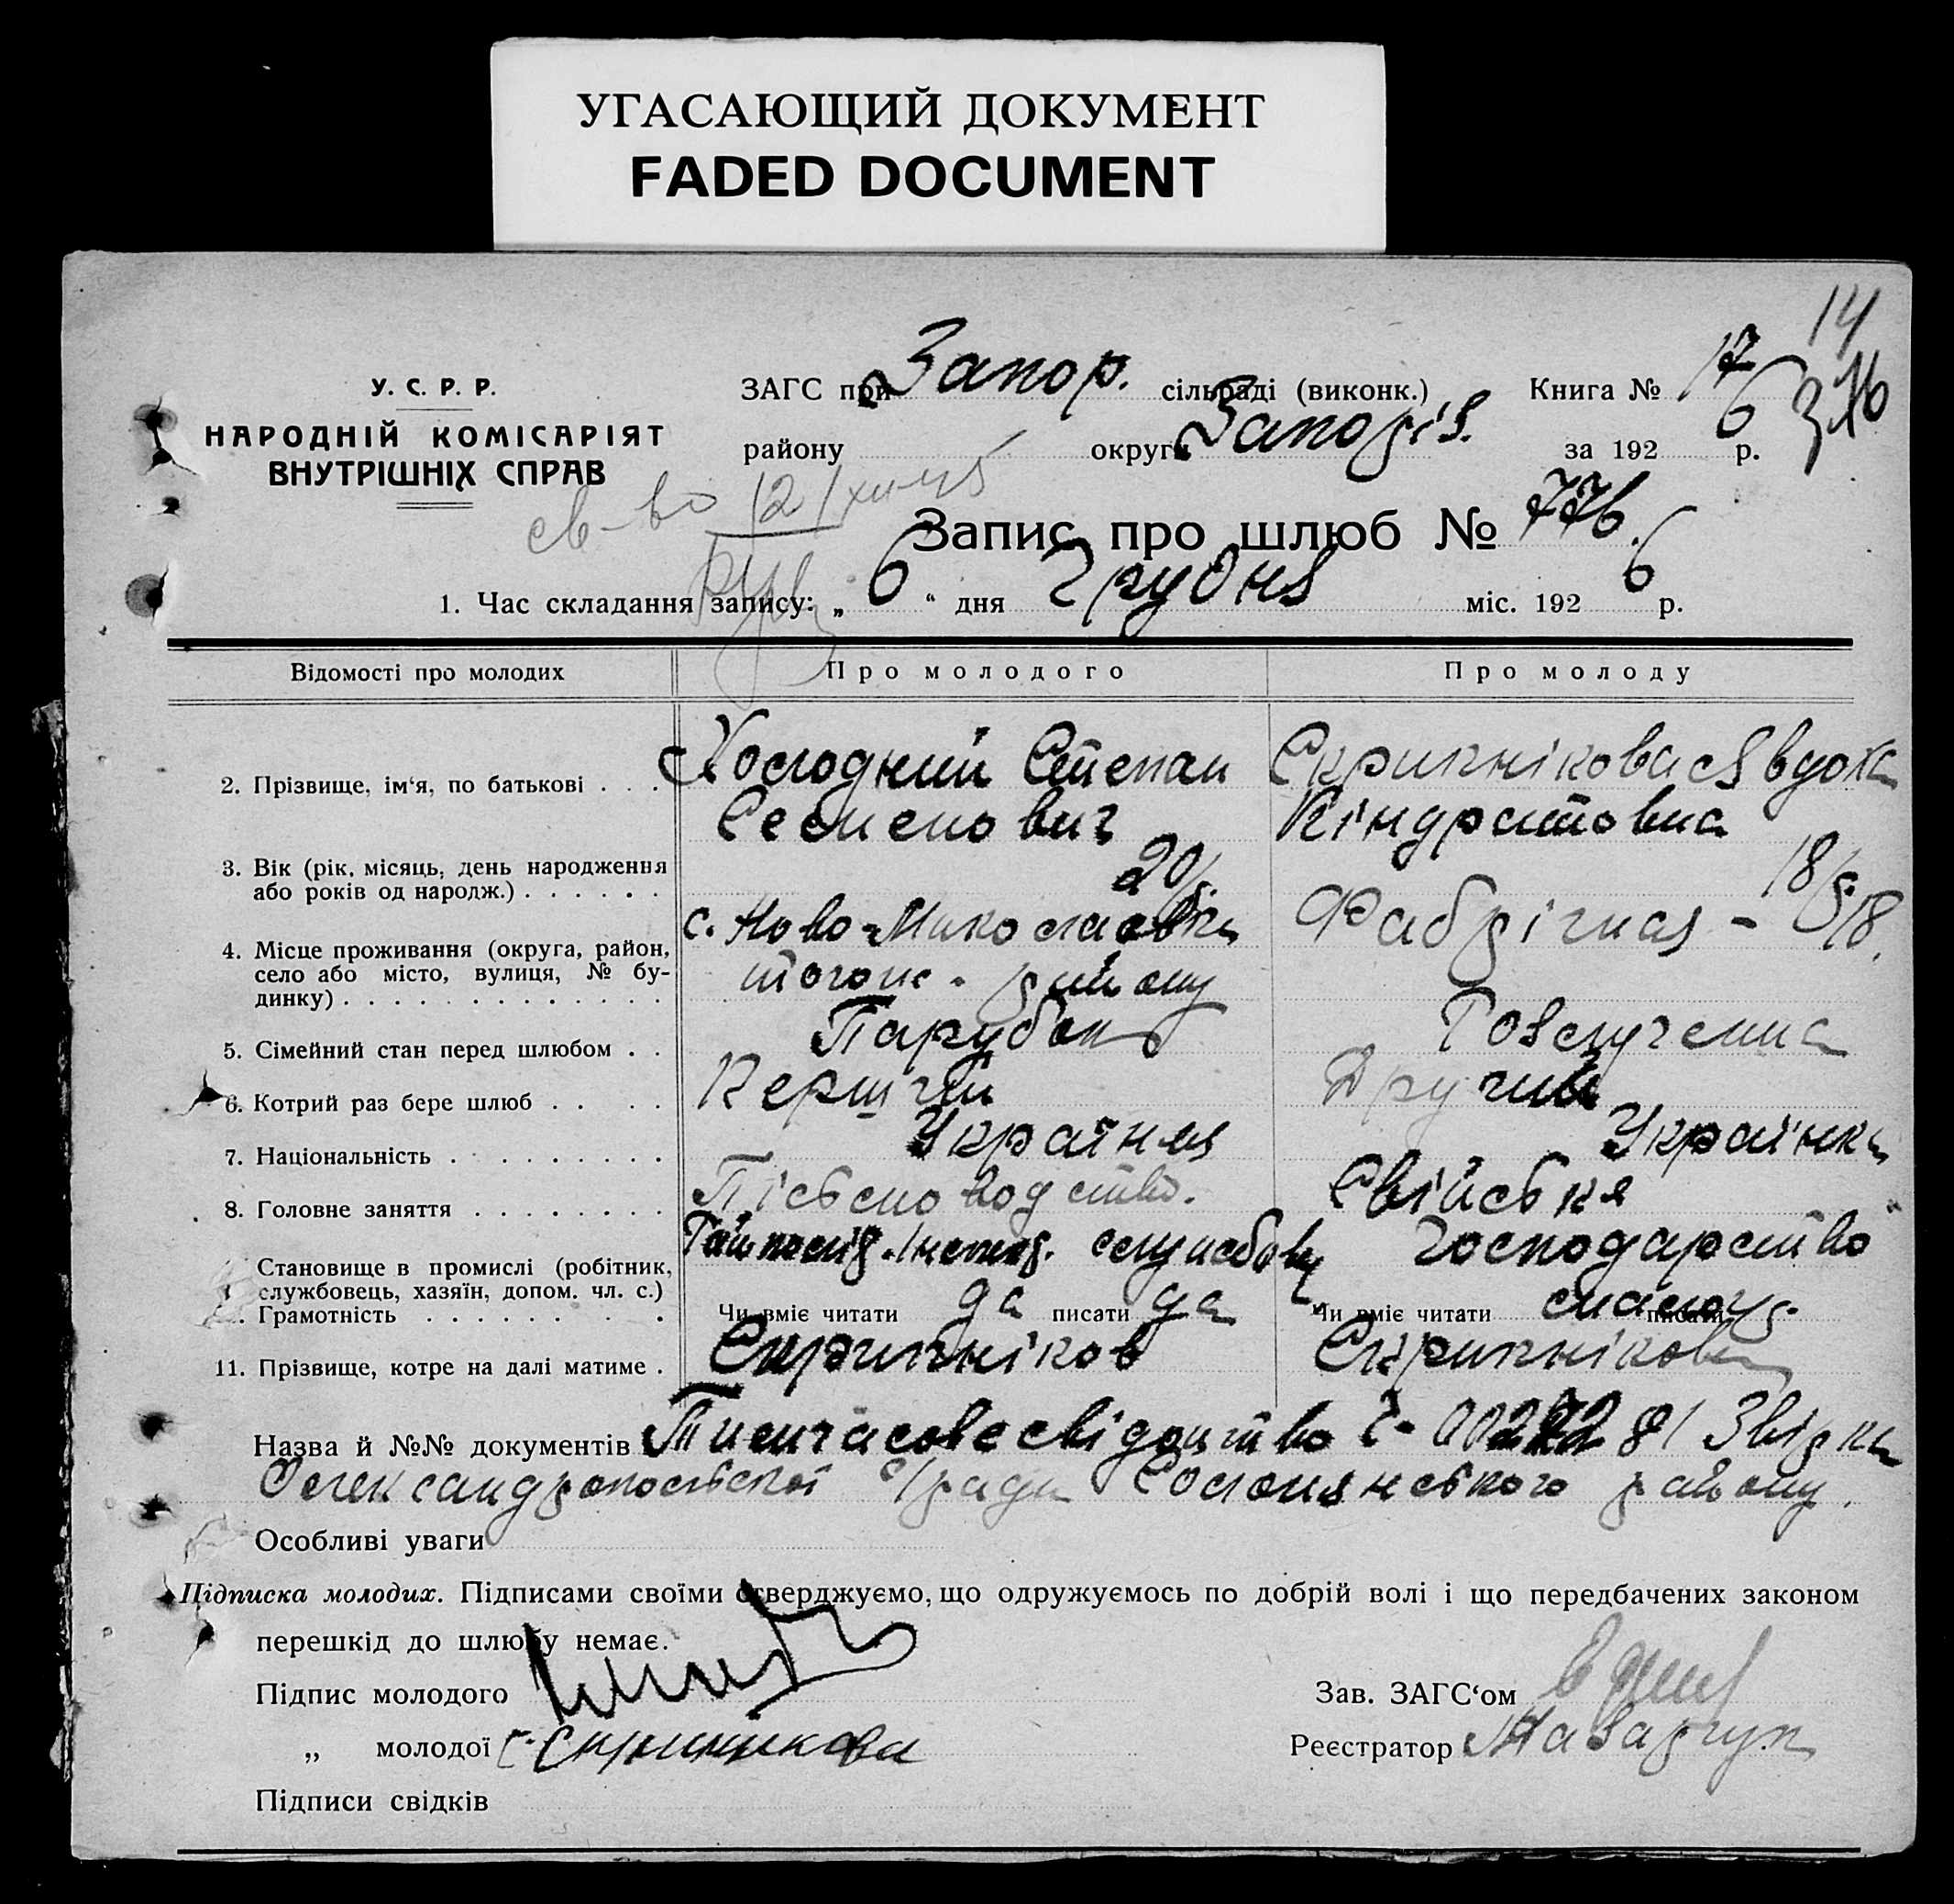 УГАСАЮЩИЙ ДОКУМЕНТ
FADED DOCUMENT
14
316
У. С. Р. Р.
НАРОДНІЙ КОМІСАРІЯТ
ВНУТРІШНІХ СПРАВ
ЗАГС при Запор. сільраді (виконк.) Книга № 17
району округи Запоріз. за 1926 р.
св-во
Запис про шлюб № 776.
1. Час складання запису: „ 6 “ дня Грудня міс. 1926 р.
Відомості про молодих Про молодого Про молоду
2. Прізвище, ім‘я, по батькові . . . Холодний Степан Скрипнікова Явдока
Семенович Кіндратовна
3. Вік (рік, місяць, день народження
або років од народж.) . . . . . . 20 р. 18 р.
4. Місце проживання (округа, район,
село або місто, вулиця, № бу-
динку) . . . . . . . . . . . . . с. Ново-Миколаєвка Фабрічная - 8/18.
району
5. Сімейний стан перед шлюбом . . Парубок Розлучена
6. Котрий раз бере шлюб . . . . Перший Другий
7. Національність . . . . . . . . . Українка
8. Головне заняття . . . . . . . . Свійське
господарство
Становище в промислі (робітник,
службовець, хазяїн, допом. чл. с.)
Грамотність . . . . . . . . Чи вміє читати да писати да Чи вміє читати писати
11. Прізвище, котре на далі матиме . Скрипніков Скрипнікова
Назва й №№ документів Тимчасове свідоцтво
Олександропольської с/ради Солонянського району.
Особливі уваги
Підписка молодих. Підписами своїми стверджуємо, що одружуємось по добрій волі і що передбачених законом
перешкід до шлюбу немає.
Підпис молодого Зав. ЗАГС‘ом
„ молодої Скрипникова Реєстратор Назарчук
Підписи свідків